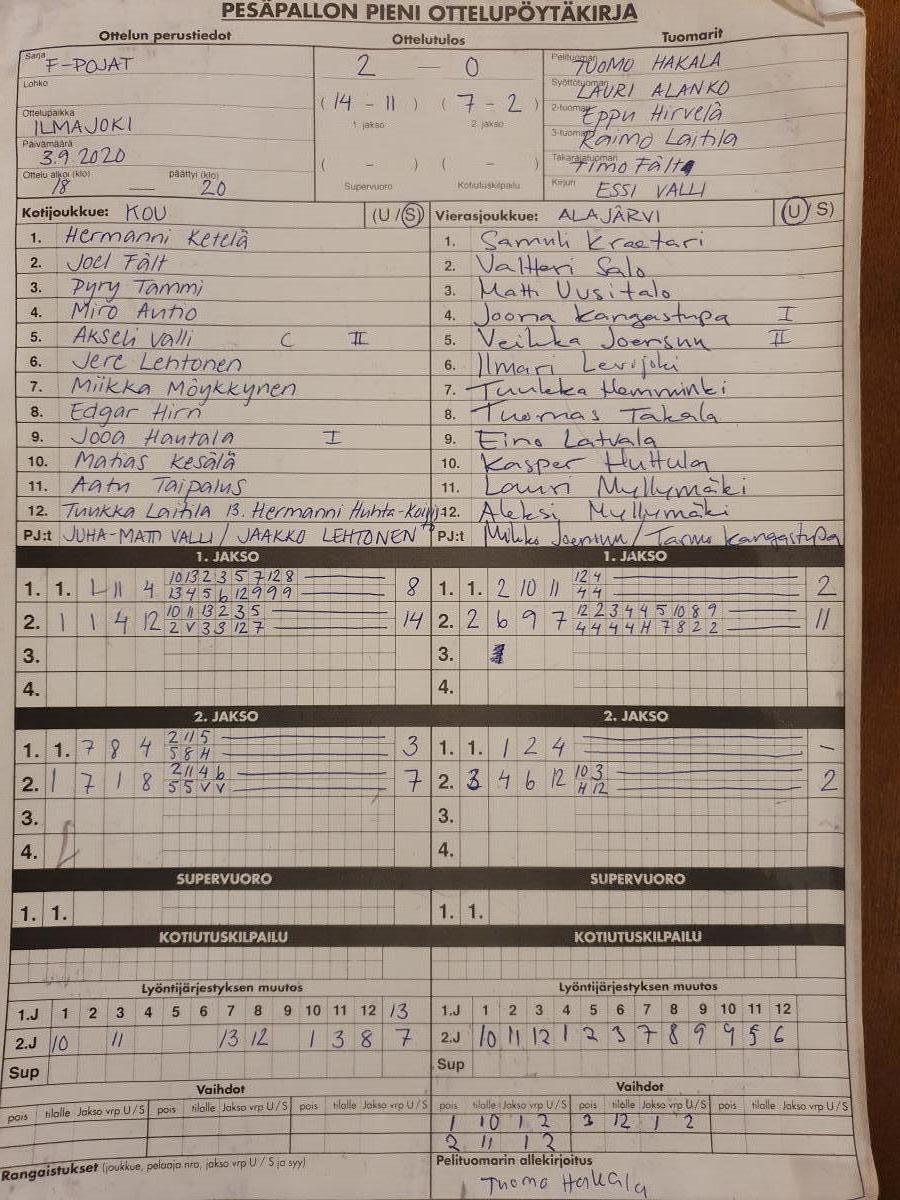 PESÄPALLON PIENI OTTELUPÖYTÄKIRJA
Ottelun perustiedot
Sarja F-POJAT
Lohko
Ottelupaikka ILMAJOKI
Päivämäärä 3.9.2020
Ottelu alkoi (klo) 18 — päättyi (klo) 20
Ottelutulos
2 — 0
( 14 - 11 ) ( 7 - 2 )
1. jakso 2. jakso
( - ) ( - )
Supervuoro Kotiutuskilpailu
Tuomarit
Pelituomari TUOMO HAKALA
Syöttötuomari LAURI ALANKO
2-tuomari Eppu Hirvelä
3-tuomari Raimo Laitila
Takarajatuomari Timo Fält
Kirjuri ESSI VALLI
Kotijoukkue: KOU (U/S)
1. Hermanni Ketelä
2. Joel Fält
3. Pyry Tammi
4. Miro Autio
5. Akseli Valli C II
6. Jere Lehtonen
7. Miikka Möykkynen
8. Edgar Hirn
9. Jooa Hautala I
10. Matias Kesälä
11. Aatu Taipalus
12. Tuukka Laitila 13. Hermanni Huhta-
PJ:t JUHA-MATTI VALLI / JAAKKO LEHTONEN
Vierasjoukkue: ALAJÄRVI (U/S)
1. Samuli Kraatari
2. Valtteri Salo
3. Matti Uusitalo
4. Joona Kangastupa I
5. Veikka Joensuu II
6. Ilmari Levijoki
7. Tuukka Hemminki
8. Tuomas Takala
9. Eino Latvala
10. Kasper Huttula
11. Lauri Myllymäki
12. Aleksi Myllymäki
PJ:t Mikko Joensuu / Tarmo Kangastupa
1. JAKSO
1. 1. 1 11 4 10 13 2 3 5 7 12 8 8
13 4 5 6 12 9 9 9
2. 1 1 4 12 10 11 13 2 3 5 14
2 V 3 3 12 7
3.
4.
1. JAKSO
1. 1. 2 10 11 12 4 2
4 4
2. 2 6 9 7 12 2 3 4 4 5 10 8 9 11
4 4 4 4 H 7 8 2 2
3.
4.
2. JAKSO
1. 1. 7 8 4 2 11 5 3
5 8 H
2. 1 7 1 8 2 11 4 6 7
5 5 V V
3.
4.
2. JAKSO
1. 1. 1 2 4 -
2. 3 4 6 12 10 3 2
H 12
3.
4.
SUPERVUORO
1. 1.
SUPERVUORO
1. 1.
KOTIUTUSKILPAILU
KOTIUTUSKILPAILU
Lyöntijärjestyksen muutos
1.J 1 2 3 4 5 6 7 8 9 10 11 12 13
2.J 10 11 13 12 1 3 8 7
Sup
Lyöntijärjestyksen muutos
1.J 1 2 3 4 5 6 7 8 9 10 11 12
2.J 10 11 12 1 2 3 7 8 9 9 5 6
Sup
Vaihdot
pois tilalle Jakso vrp U/S pois tilalle Jakso vrp U/S pois tilalle Jakso vrp U/S
Vaihdot
pois tilalle Jakso vrp U/S pois tilalle Jakso vrp U/S pois tilalle Jakso vrp U/S
1 10 1 2 3 12 1 2
2 11 1 2
Rangaistukset (joukkue, pelaaja nro, jakso vrp U / S ja syy)
Pelituomarin allekirjoitus
Tuomo Hakala